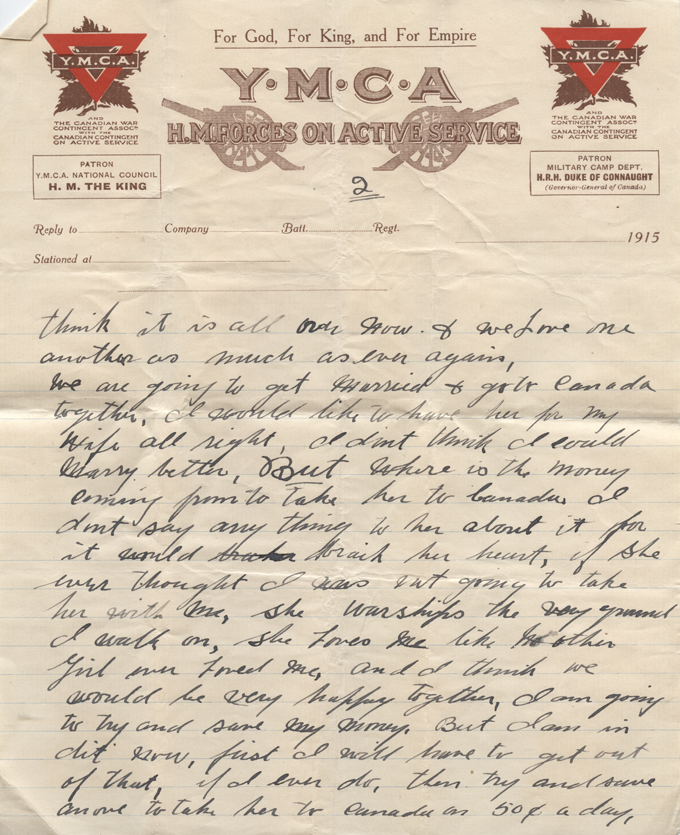 For God, For King, and For Empire
Y.M.C.A.
AND
THE CANADIAN WAR
CONTINGENT ASSOCN
WITH THE
CANADIAN CONTINGENT
ON ACTIVE SERVICE
PATRON
Y.M.C.A. NATIONAL COUNCIL
H. M. THE KING
Y·M·C·A
H.M. FORCES ON ACTIVE SERVICE
Y.M.C.A.
AND
THE CANADIAN WAR
CONTINGENT ASSOCN
WITH THE
CANADIAN CONTINGENT
ON ACTIVE SERVICE
PATRON
MILITARY CAMP DEPT.
H.R.H. DUKE OF CONNAUGHT
(Governor-General of Canada)
2
Reply to Company Batt. Regt. 1915
Stationed at
think it is all over now. & we Love one
another as much as ever again,
We are going to get Married & go to Canada
together, I would like to have her for my
Wife all right, I dont think I could
Marry better, But Where is the money
coming from to Take her to Canada I
dont say any thing to her about it for
it would braik her heart, if She
ever thought I was not going to take
her with Me, she warships the very ground
I walk on, she Loves Me like No other
Girl ever Loved Me, and I think we
would be very happy together, I am going
to try and save My Money. But I am in
det now, first I will have to get out
of that, if I ever do, then try and save
anove to take her to Canada on 50¢ a day,